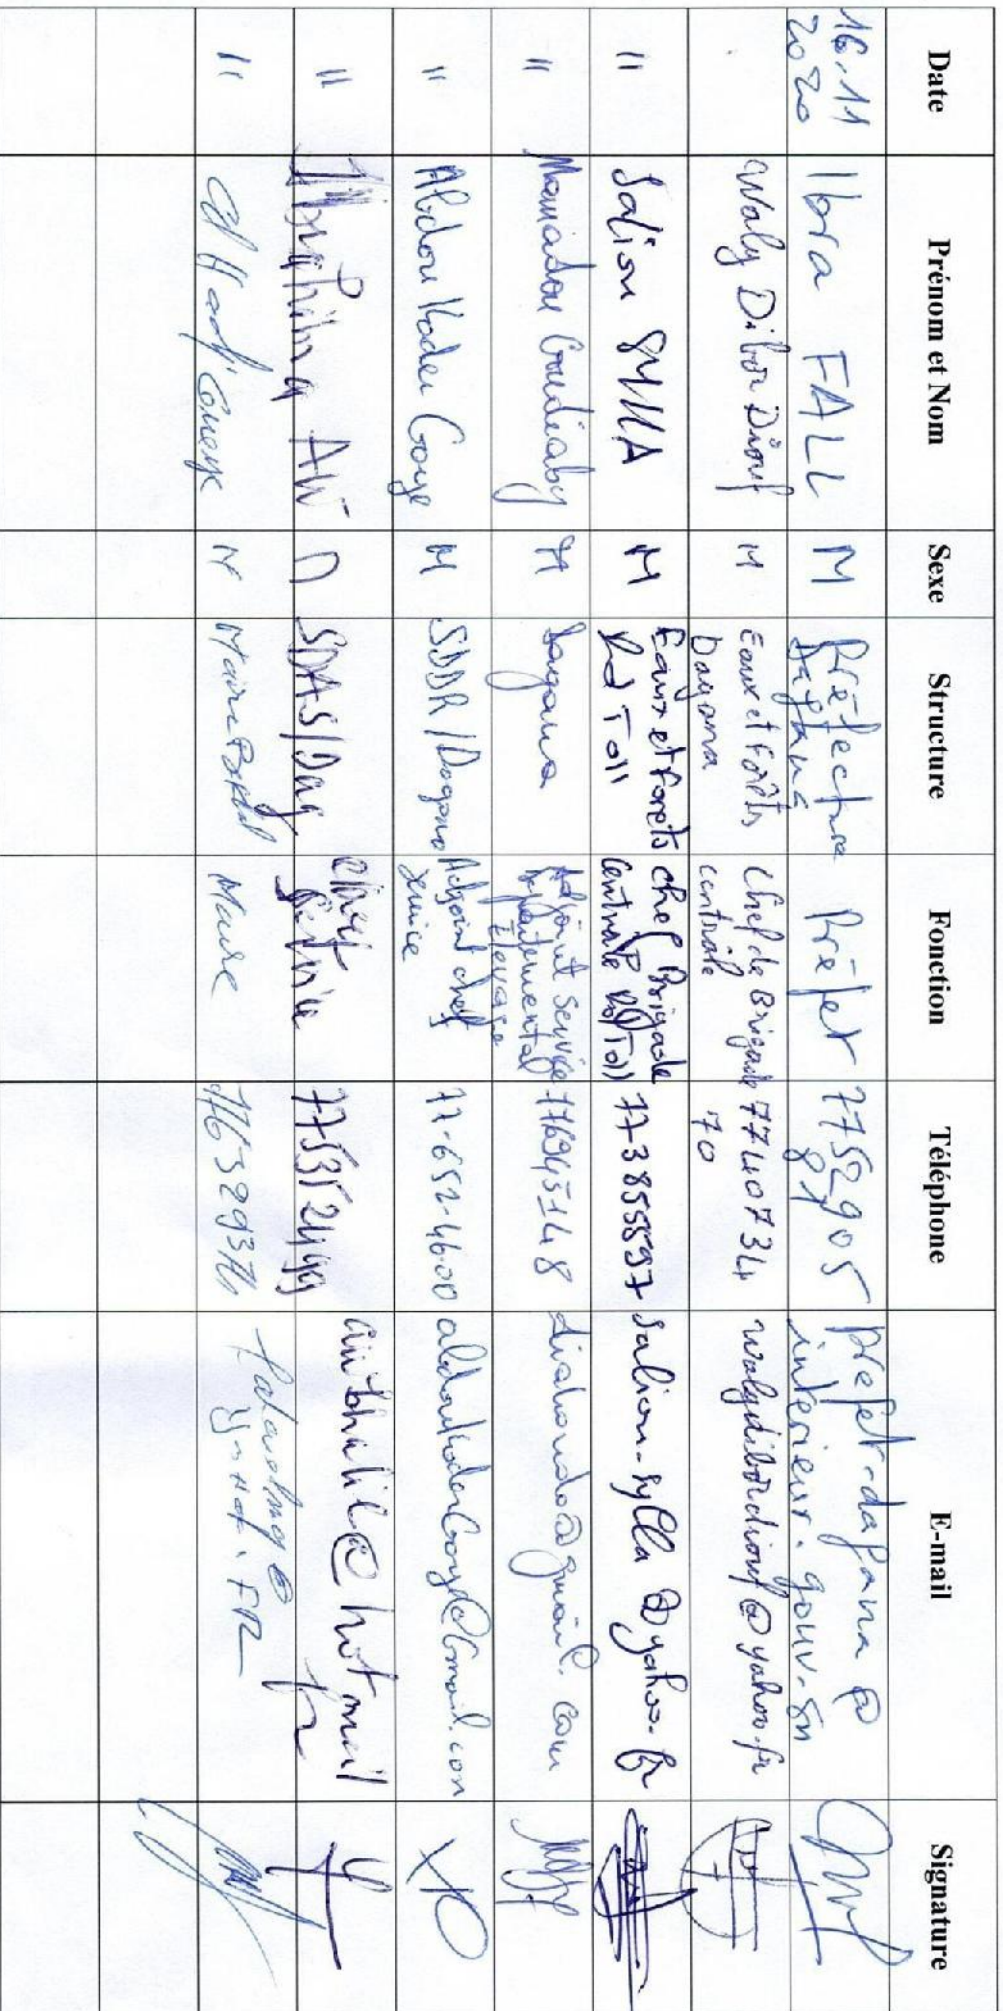 Date Prénom et Nom Sexe Structure Fonction Téléphone E-mail Signature
16.11 2020 Ibra FALL M Préfecture Dagana Préfet 775290581 prefet-dagana@interieur.gouv.sn
Waly Dibor Diouf M Eaux et Forêts Dagana Chef de Brigade contrôle 77440734 70 walydibordiouf@yahoo.fr
" Saliou SYLLA M Eaux et forets Rd Toll chef Brigade Centrale Rd Toll 773855597 saliou-sylla@yahoo.fr
" Mamadou Goudiaby M Dagana Adjoint service départemental Elevage 776945148
" Abdou Kader Gaye M SDDR/Dagana Adjoint chef service 77-652-46-00 abdoulkadergaye@gmail.com
" Ibrahima AW SDAS/Dag chef service 775352499 @hotmail fr
" El Hadj M Maire